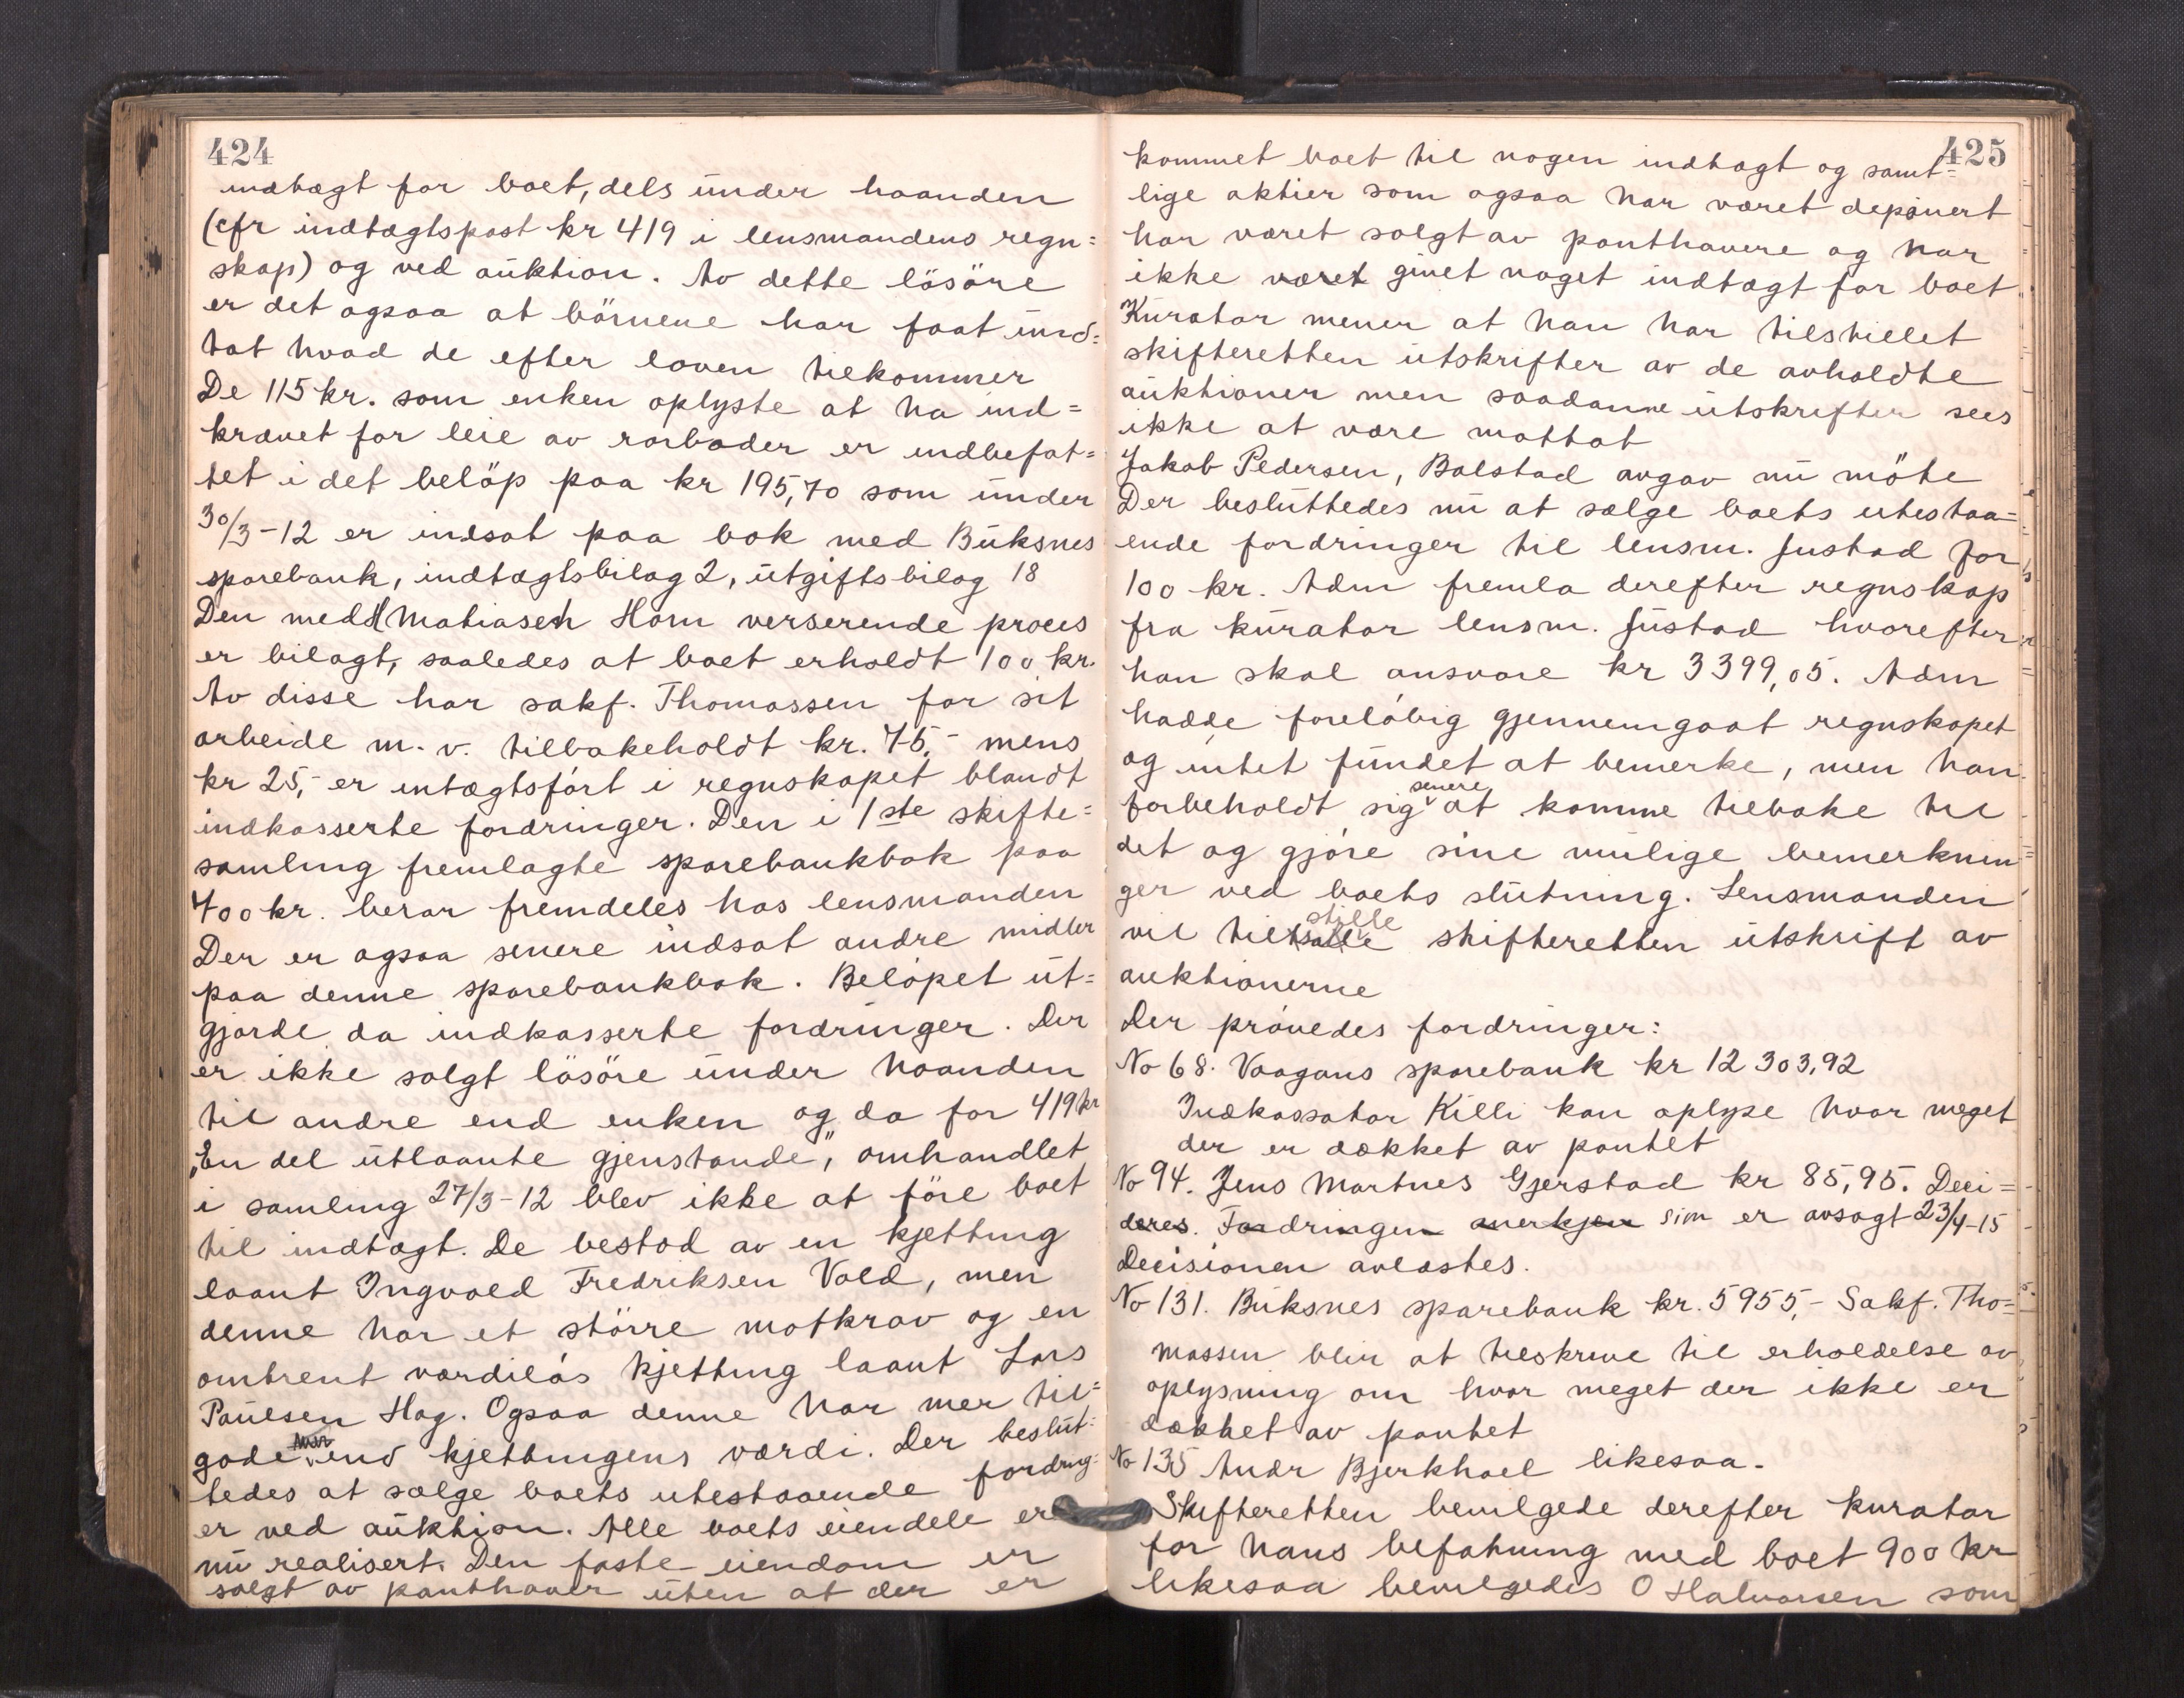 424
indtægt for boet, dels under haanden
(cfr indtægtspost kr 419 i lensmandens regn=
skap) og ved auktion. Av dette lösöre
er det ogsaa at börnene har faat und=
tat hvad de efter loven tilkommer
De 115 kr. som enken oplyste at ha ind=
krævet for leie av rorboder er indbefat=
tet i det belöp paa kr 195,70 som under
30/3-12 er indsat paa bok med Buksnes
sparebank, indtægtsbilag 2, utgiftsbilag 18
Den med Matiasen Horn verserende proces
er bilagt, saaledes at boet erholdt 100 kr.
Av disse har sakf. Thomassen for sit
arbeide m.v. tilbakeholdt kr. 75,- mens
kr 25,- er intægtsført i regnskapet blandt
indkasserte fordringer. Den i 1ste skifte=
samling fremlagte sparebankbok paa
400 kr. beror fremdeles hos lensmanden
Der er ogsaa senere indsat andre midler
paa denne sparebankbok. Beløpet ut=
gjorde da indkasserte fordringer. Der
er ikke solgt lösöre under haanden
til andre end enken og da for 419 kr
„En del utlaante gjenstande", omhandlet
i samling 27/3-12 blev ikke at före boet
til indtægt. De bestod av en kjetting
laant Ingvald Fredriksen Vold, men
denne har et större motkrav og en
omtrent værdiløs kjetting laant Lars
Paulsen Hag. Ogsaa denne har mer til=
gode end kjettingens værdi. Der beslut=
tedes at sælge boets utestaaende fordring=
er ved auktion. Alle boets eiendele er
nu realisert. Den faste eiendom er
solgt av panthaver uten at der er
425
kommet boet til nogen indtægt og samt=
lige aktier som ogsaa har været deponert
har været solgt av panthavere og har
ikke været givet noget indtægt for boet
Kurator mener at han har tilstillet
skifteretten utskrifter av de avholdte
auktioner men saadanne utskrifter sees
ikke at være mottat
Jakob Pedersen, Balstad avgav nu möte
Der besluttedes nu at sælge boets utestaa=
ende fordringer til lensm. Justad for
100 kr. Adm fremla derefter regnskap
fra kurator lensm. Justad hvorefter
han skal ansvare kr 3399,05. Adm
hadde foreløbig gjennemgaat regnskapet
og intet fundet at bemerke, men han
forbeholdt sig senere at komme tilbake til
det og gjøre sine mulige bemerknin
ger ved boets slutning. Lensmanden
vil tilstille skifteretten utskrift av
auktionerne
Der prøvedes fordringer:
No 68. Vaagans sparebank kr 12 303,92
Indkassator Killi kan oplyse hvor meget
der er dækket av pantet
No 94. Jens Martnes Gjerstad kr 85,95. Deci=
deres. Fordringen anerkjen sion er avsagt 23/4-15
Decisionen avlæstes.
No 131. Buksnes sparebank kr. 5955,- Sakf. Tho=
massen blir at tilskrive til erholdelse av
oplysning om hvor meget der ikke er
dækket av pantet
No 135 Andr Bjerkhoel likesaa.
Skifteretten bevilgede derefter kurator
for hans befatning med boet 900 kr
likesaa bevilgedes O Halvorsen som